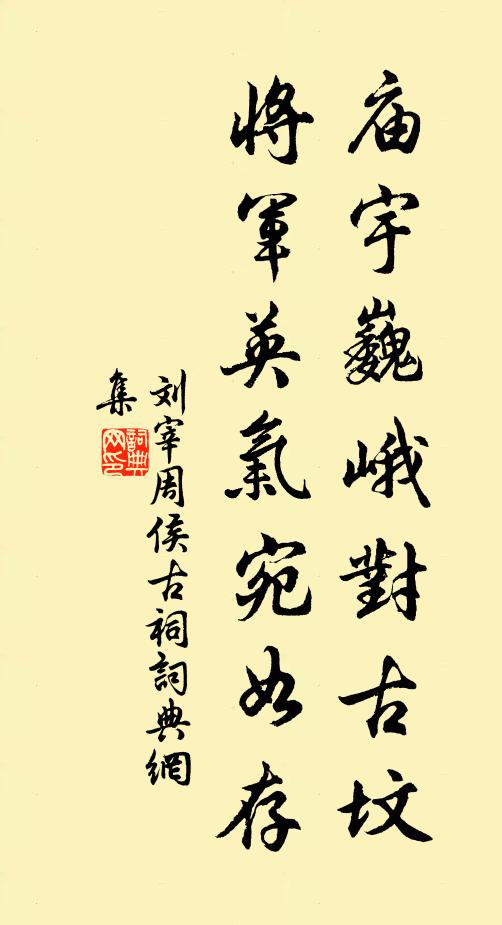 庙宇巍峨對古坟
將軍英氣宛如存
刘宰周侯古祠詞典網
集
詞典网印